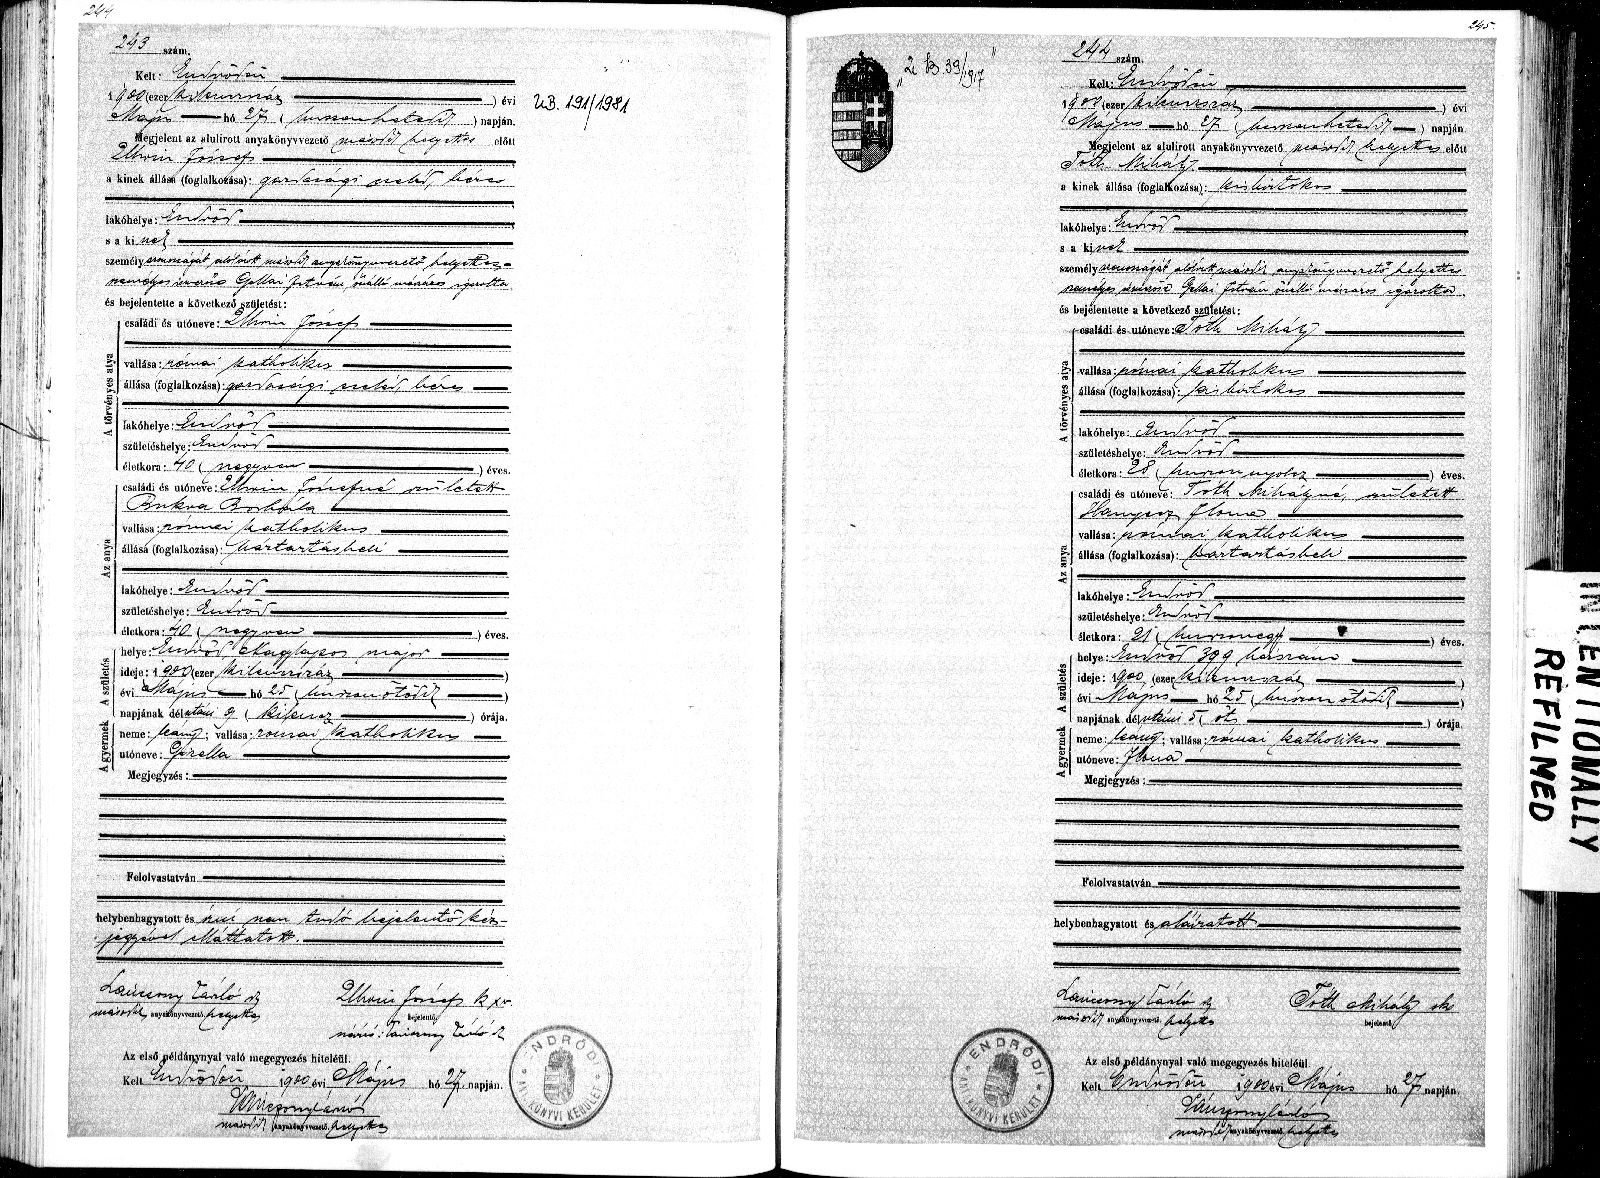 244
243 szám.
Kelt: Endrődön
1900 (ezerkilencszáz ) évi
Május hó 27 ( huszonhetedik ) napján.
Megjelent az alulirott anyakönyvvezető másodh helyettes előtt
József
a kinek állása (foglalkozása): gazdasági cseléd, béres
lakóhelye: Endrőd
s a kinek
személyazonosságát alólirott másodh anyakönyvvezető helyettes
személyes ismerőse Gellai István önálló mészáros igazolta
és bejelentette a következő születést:
A törvényes atya
családi és utóneve: József
vallása: római katholikus
állása (foglalkozása): gazdasági cseléd, béres
lakóhelye: Endrőd
születéshelye: Endrőd
életkora: 40 ( negyven ) éves.
Az anya
családi és utóneve: Józsefné született
Borbála
vallása: római katholikus
állása (foglalkozása): háztartásbeli
lakóhelye: Endrőd
születéshelye: Endrőd
életkora: 40 ( negyven ) éves.
A születés
helye: Endrőd Nagylapos major
ideje: 1900 (ezer kilencszáz )
évi Május hó 25 ( huszonötödik )
napjának délutáni 9 ( kilencz ) órája.
A gyermek
neme: leány; vallása: római katholikus
utóneve: Gizella
Megjegyzés:
Felolvastatván
helybenhagyatott és irni nem tudó bejelentő kéz-
jegyével elláttatott.
Láncsony László sk
másodh anyakönyvvezető helyettes
József k x v.
bejelentő.
Az első példánynyal való megegyezés hiteléül.
Kelt Endrődön 1900 évi Május hó 27. napján.
másodh anyakönyvvezető helyettes
ENDRŐDI ANYAKÖNYVI KERÜLET
UB. 191/1981
245.
"2 B 39/1917"
244 szám.
Kelt: Endrődön
1900 (ezerkilencszáz ) évi
Május hó 27 ( huszonhetedik ) napján
Megjelent az alulirott anyakönyvvezető másodh helyettes előtt
Tóth Mihály
a kinek állása (foglalkozása): kisbirtokos
lakóhelye: Endrőd
s a kinek
személyazonosságát alólirott másodh anyakönyvvezető helyettes
személyes ismerőse Gellai István önálló mészáros igazolta
és bejelentette a következő születést:
A törvényes atya
családi és utóneve: Tóth Mihály
vallása: római katholikus
állása (foglalkozása): kisbirtokos
lakóhelye: Endrőd
születéshelye: Endrőd
életkora: 28 ( huszonnyolcz ) éves.
Az anya
családi és utóneve: Tóth Mihályné, született
Hanyecz Ilona
vallása: római katholikus
állása (foglalkozása): háztartásbeli
lakóhelye: Endrőd
születéshelye: Endrőd
életkora: 21 ( huszonegy ) éves.
A születés
helye: Endrőd 399 házszám
ideje: 1900 (ezer kilencszáz )
évi Május hó 25 ( huszonötödik )
napjának délutáni 5 ( öt ) órája.
A gyermek
neme: leány; vallása: római katholikus
utóneve: Ilona
Megjegyzés:
Felolvastatván
helybenhagyatott és aláiratott
Láncsony László sk
másodh anyakönyvvezető helyettes
Tóth Mihály sk
bejelentő.
Az első példánynyal való megegyezés hiteléül.
Kelt Endrődön 1900 évi Május hó 27. napján.
másodh anyakönyvvezető helyettes
ENDRŐDI ANYAKÖNYVI KERÜLET
INTENTIONALLY
REFILMED